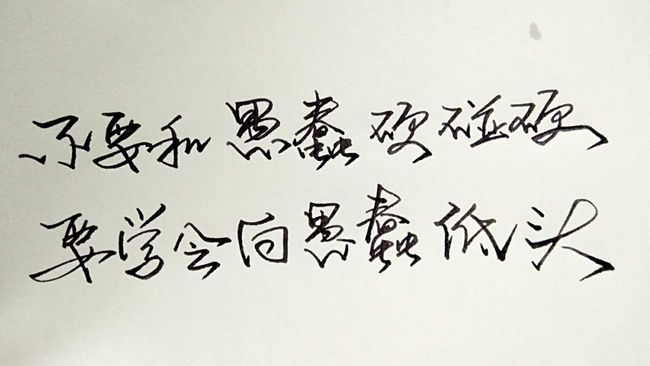 不要和愚蠢硬碰硬
要学会向愚蠢低头